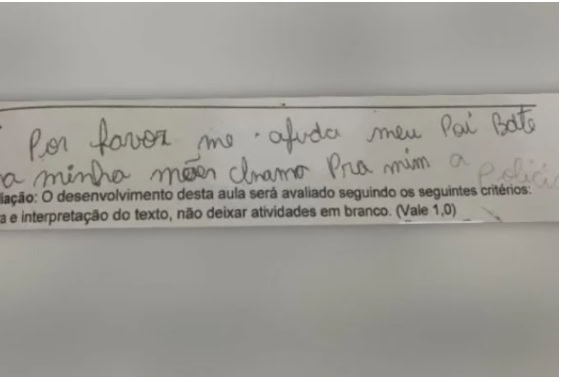 Por favor me ajuda meu Pai Bate
a minha mãe chama Pra mim a Polici
lação: O desenvolvimento desta aula será avaliado seguindo os seguintes critérios:
a e interpretação do texto, não deixar atividades em branco. (Vale 1,0)